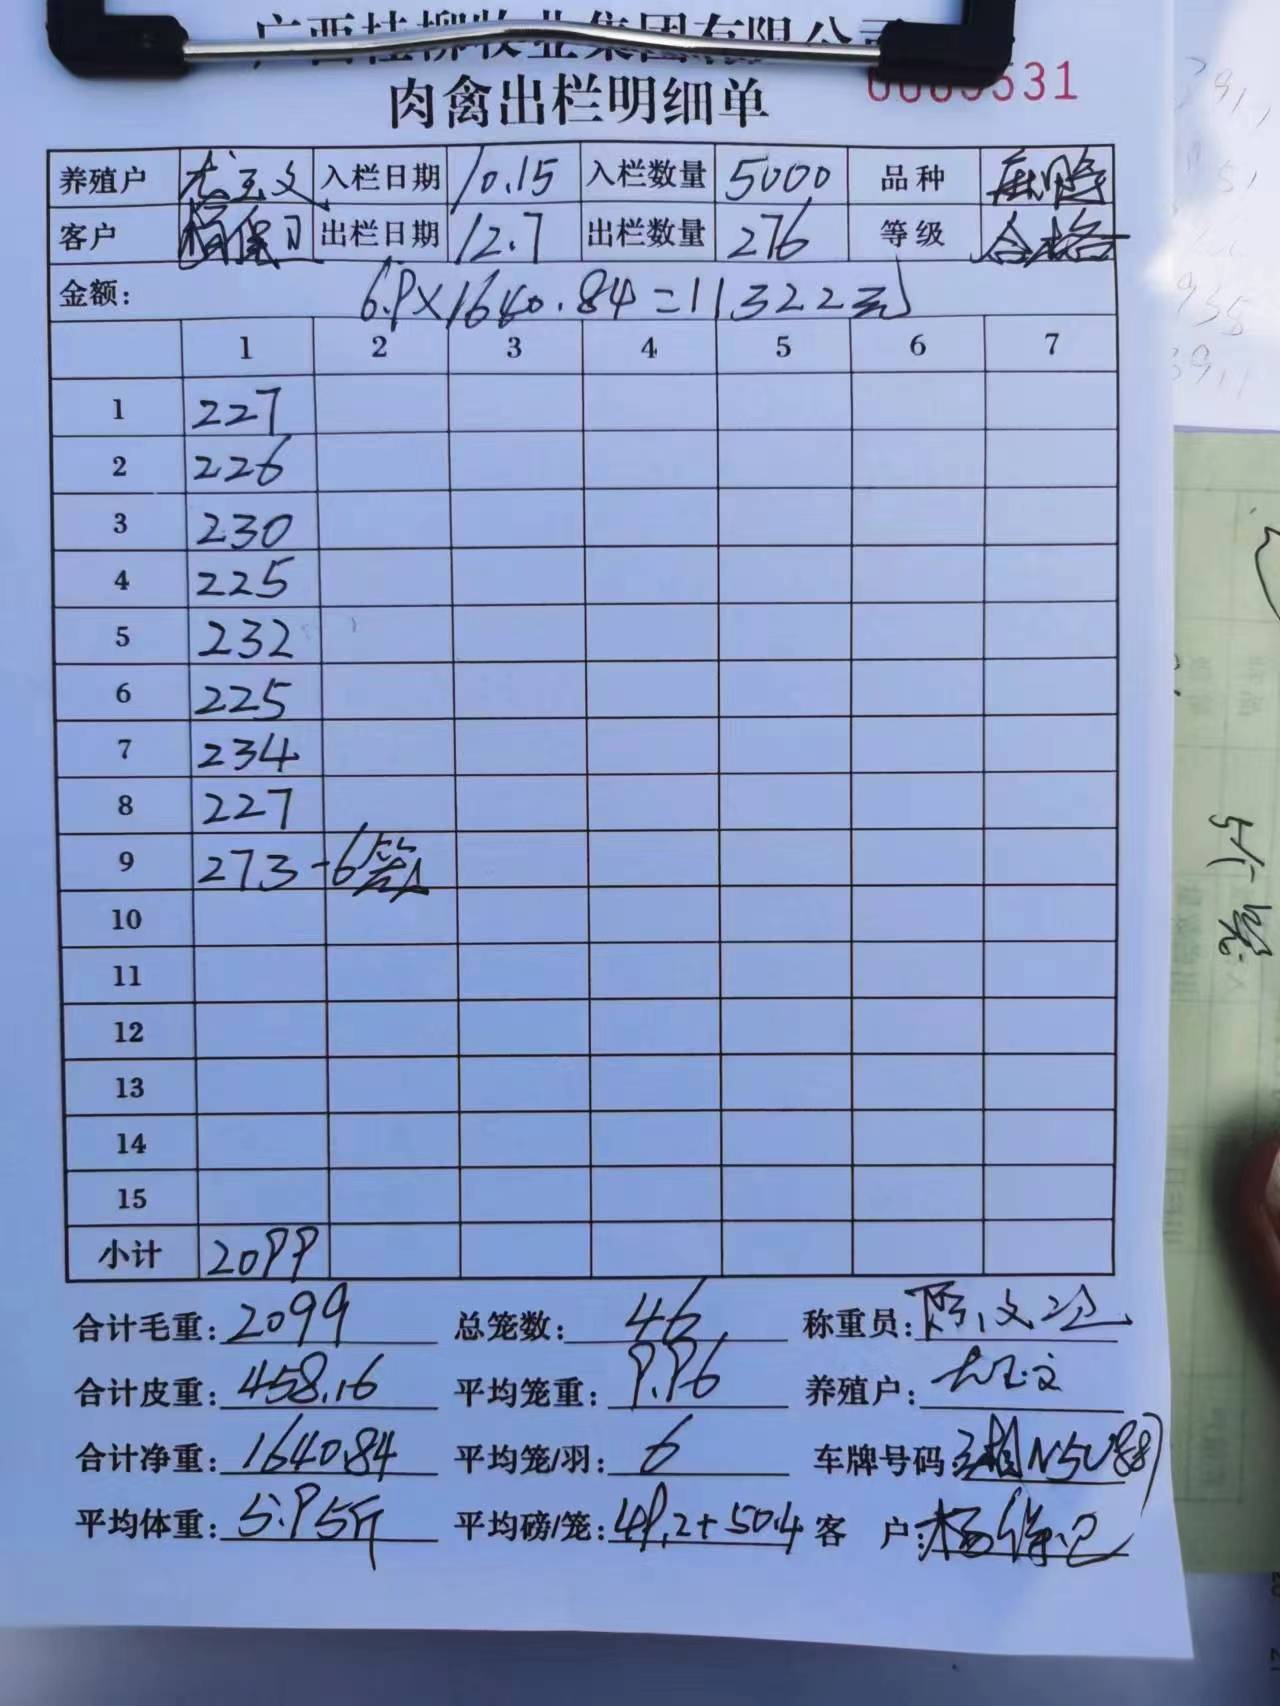 广西桂柳牧业集团有限公司
肉禽出栏明细单
养殖户 尤玉文 入栏日期 10.15 入栏数量 5000 品种 麻鸭
客户 出栏日期 12.7 出栏数量 276 等级 合格
金额: 6.9×1640.84=11322元
1 2 3 4 5 6 7
1 227
2 226
3 230
4 225
5 232
6 225
7 234
8 227
9 273-6笼
10
11
12
13
14
15
小计 2099
合计毛重: 2099 总笼数: 46 称重员:
合计皮重: 458.16 平均笼重: 9.96 养殖户: 尤玉文
合计净重: 1640.84 平均笼/羽: 6 车牌号码:
平均体重: 5.95斤 平均磅/笼: 49.2+50.4 客 户:
5个笼